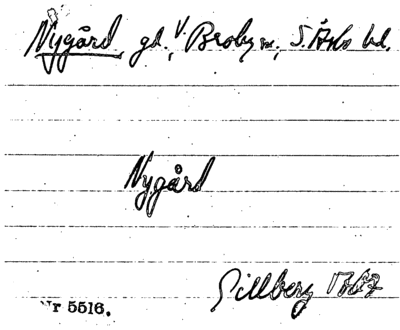 Nygård, gd., V. Broby sn, S. Åsbo hd.
Nygård
Gillberg 1767
Nr 5516.